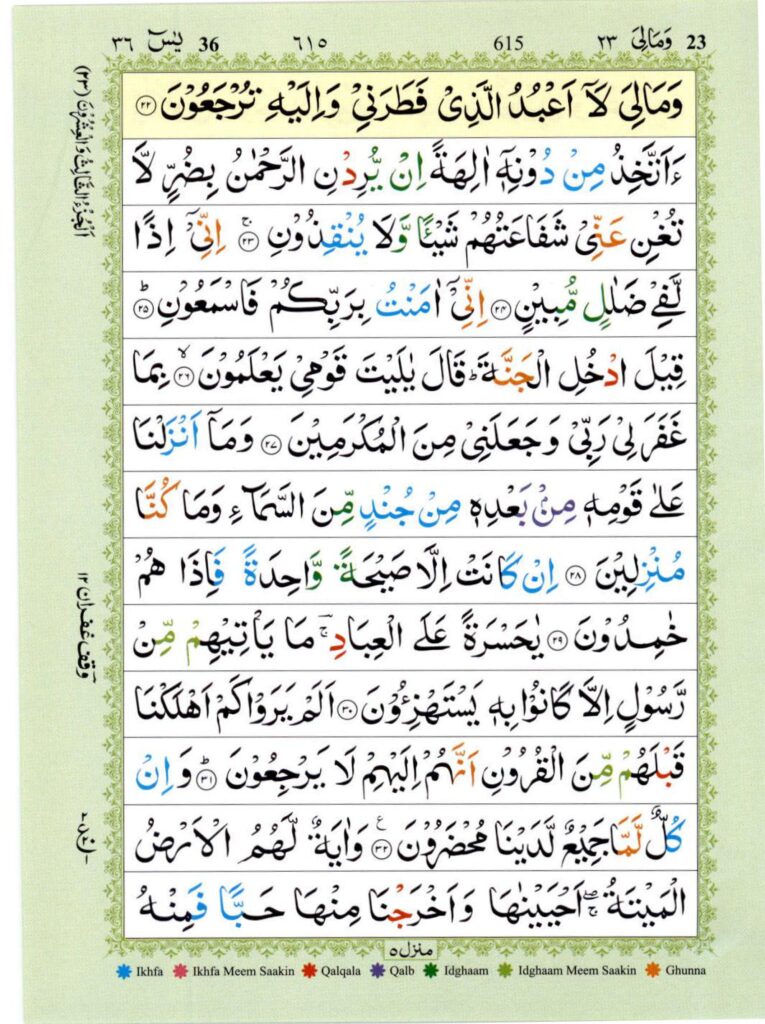 ٣٦ يٰسٓ 36 ٦١٥ 615 وَمَالِىَ ٢٣ 23
وَمَالِىَ لَآ اَعْبُدُ الَّذِىْ فَطَرَنِىْ وَاِلَيْهِ تُرْجَعُوْنَ ﴿٢٢﴾
ءَاَتَّخِذُ مِنْ دُوْنِهٖٓ اٰلِهَةً اِنْ يُّرِدْنِ الرَّحْمٰنُ بِضُرٍّ لَّا
تُغْنِ عَنِّىْ شَفَاعَتُهُمْ شَيْـًٔا وَّلَا يُنْقِذُوْنِ ﴿٢٣﴾ اِنِّىْٓ اِذًا
لَّفِىْ ضَلٰلٍ مُّبِيْنٍ ﴿٢٤﴾ اِنِّىْٓ اٰمَنْتُ بِرَبِّكُمْ فَاسْمَعُوْنِ ﴿٢٥﴾ ؕ
قِيْلَ ادْخُلِ الْجَنَّةَ ؕ قَالَ يٰلَيْتَ قَوْمِىْ يَعْلَمُوْنَ ﴿٢٦﴾ ۙ بِمَا
غَفَرَ لِىْ رَبِّىْ وَجَعَلَنِىْ مِنَ الْمُكْرَمِيْنَ ﴿٢٧﴾ وَمَآ اَنْزَلْنَا
عَلٰى قَوْمِهٖ مِنْۢ بَعْدِهٖ مِنْ جُنْدٍ مِّنَ السَّمَآءِ وَمَا كُنَّا
مُنْزِلِيْنَ ﴿٢٨﴾ اِنْ كَانَتْ اِلَّا صَيْحَةً وَّاحِدَةً فَاِذَا هُمْ
خٰمِدُوْنَ ﴿٢٩﴾ يٰحَسْرَةً عَلَى الْعِبَادِ ۚ مَا يَاْتِيْهِمْ مِّنْ
رَّسُوْلٍ اِلَّا كَانُوْا بِهٖ يَسْتَهْزِءُوْنَ ﴿٣٠﴾ اَلَمْ يَرَوْا كَمْ اَهْلَكْنَا
قَبْلَهُمْ مِّنَ الْقُرُوْنِ اَنَّهُمْ اِلَيْهِمْ لَا يَرْجِعُوْنَ ﴿٣١﴾ ؕ وَاِنْ
كُلٌّ لَّمَّا جَمِيْعٌ لَّدَيْنَا مُحْضَرُوْنَ ﴿٣٢﴾ وَاٰيَةٌ لَّهُمُ الْاَرْضُ
الْمَيْتَةُ ۖۚ اَحْيَيْنٰهَا وَاَخْرَجْنَا مِنْهَا حَبًّا فَمِنْهُ
اَلْجُزْءُ الثَّالِثُ وَالْعِشْرُوْنَ (٢٣)
وقف غفران ١٢
منزل ٥
Ikhfa Ikhfa Meem Saakin Qalqala Qalb Idghaam Idghaam Meem Saakin Ghunna